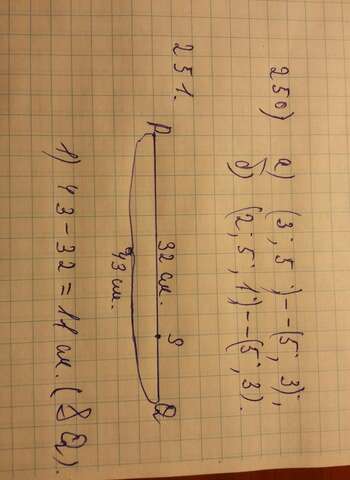 250) а) (3; 5) - - (5; 3);
б) (2; 5; 1;) - - (5; 3).
251.
P 32 см. S Q
43 см.
1) 43 - 32 = 11 см. (SQ).